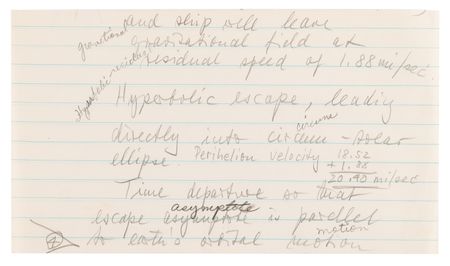 and ship will leave
gravitational gravitational field at
residual speed of 1.88 mi/sec.
Hyperbolic residual
Hyperbolic escape, leading
circum
directly into circum-solar
ellipse. Perihelion velocity 18.52
+ 1.88
20.40 mi/sec
Time departure so that
asymptote
escape asymptote is parallel
motion
to earth's orbital motion